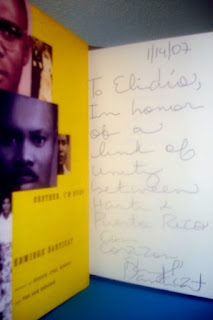 BROTHER, I'M DYING
EDWIDGE DANTICAT
1/14/07
To Elidio,
In honor
of a
link of
unity
between
Haiti &
Puerto Rico
Con
Corazon